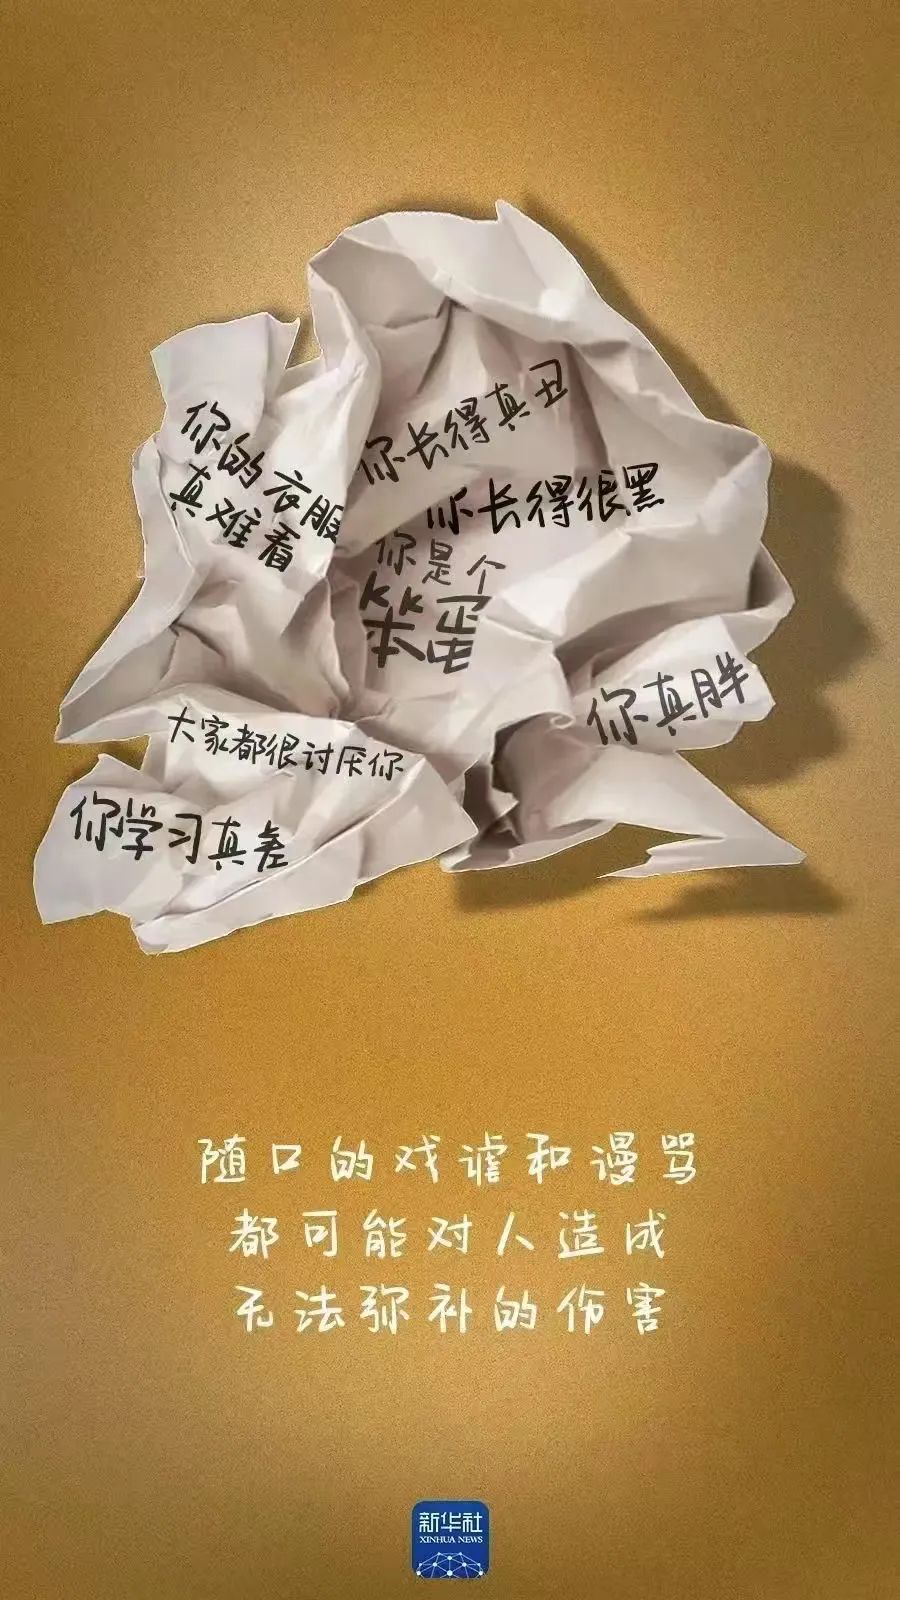 你长得真丑
你的衣服
真难看
你长得很黑
你是个
笨蛋
你真胖
大家都很讨厌你
你学习真差
随口的戏谑和谩骂
都可能对人造成
无法弥补的伤害
新华社
XINHUA NEWS